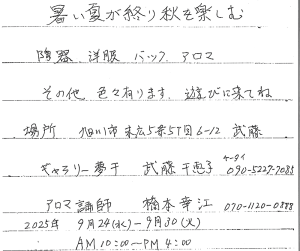 暑い夏が終り秋を楽しむ
陶器 洋服 バック アロマ
その他 色々有ります。遊びに来てね
場所 旭川市 末広5条5丁目6-12 武藤
ギャラリー夢千 武藤千恵子 ケータイ 090-5227-7085
アロマ講師 橋本幸江 070-1120-0888
2025年 9月24(水)-9月30(火)
AM 10:00~PM 4:00